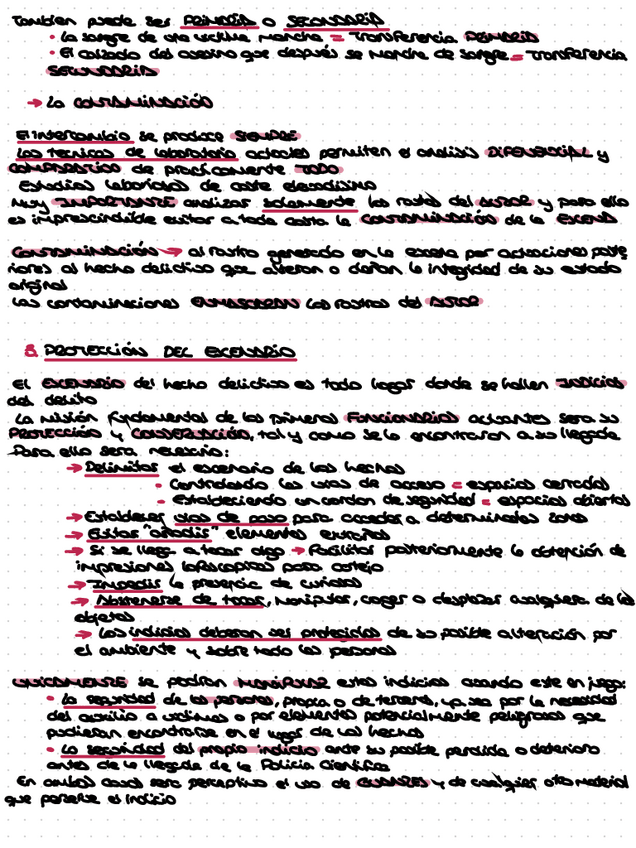 Tambien puede ser PRIMARIA o SECUNDARIA
• La sangre de una victima mancha = Transferencia PRIMARIA
• El calzado del asesino que después se mancha de sangre = Transferencia
SECUNDARIA
→ La CONTAMINACIÓN
El intercambio se produce SIEMPRE
Las tecnicas de laboratorio actuales permiten el analisis DIFERENCIAL y
COMPARATIVO de prácticamente TODO
Estudios laboriosos de coste elevadisimo
Muy IMPORTANTE analizar solamente los rastros del AUTOR y para ello
es imprescindible evitar a toda costa la CONTAMINACIÓN de la ESCENA
CONTAMINACIÓN → al rastro generado en la escena por actuaciones poste
riores al hecho delictivo que alteran o dañan la integridad de su estado
original
Las contaminaciones ENMASCARAN los rastros del AUTOR
3. PROTECCIÓN DEL ESCENARIO
El ESCENARIO del hecho delictivo es todo lugar donde se hallen INDICIOS
del delito
La misión fundamental de los primeros FUNCIONARIOS actuantes sera su
PROTECCIÓN y CONSERVACIÓN, tal y como se lo encontraron a su llegada
Para ello sera necesario:
→ Delimitar el escenario de los hechos
• Controlando las vias de acceso = espacios cerrados
• Estableciendo un cordon de seguridad = espacios abiertos
→ Establecer vias de paso para acceder a determinadas zonas
→ Evitar "añadir" elementos extraños
→ Si se llega a tocar algo → Facilitar posteriormente la obtención de
impresiones lofoscopicas para cotejo
→ Impedir la presencia de curiosos
→ Abstenerse de tocar, manipular, coger o desplazar cualquiera de los
objetos
→ Los indicios deberan ser protegidos de su posible alteración por
el ambiente y sobre todo las personas
UNICAMENTE se podran MANIPULAR estos indicios cuando este en juego:
• La seguridad de las personas, propia o de terceros, ya sea por la necesidad
del auxilio a victimas o por elementos potencialmente peligrosos que
pudieran encontrarse en el lugar de los hechos
• La seguridad del propio indicio ante su posible perdida o deterioro
antes de la llegada de la Policia Cientifica
En ambos casos sera perceptivo el uso de GUANTES y de cualquier otro material
que preserve el indicio